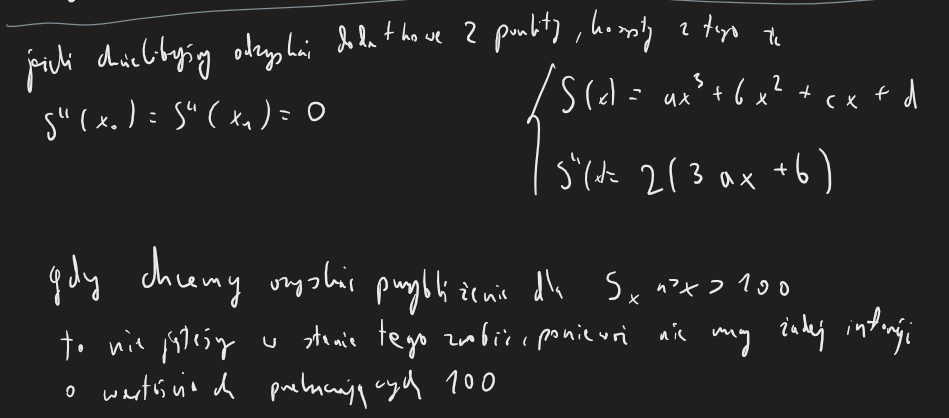 jeśli chcielibyśmy odzyskać dodatkowe 2 punkty, korzysty z tego że
S''(x₀) = S''(x₁) = 0
S(x) = ax³ + bx² + cx + d
S''(x)= 2(3ax + b)
gdy chcemy uzyskać przybliżenie dla Sₓ x > 100
to nie jesteśmy w stanie tego zrobić, ponieważ nie my żadnej
o wartościach przekraczających 100